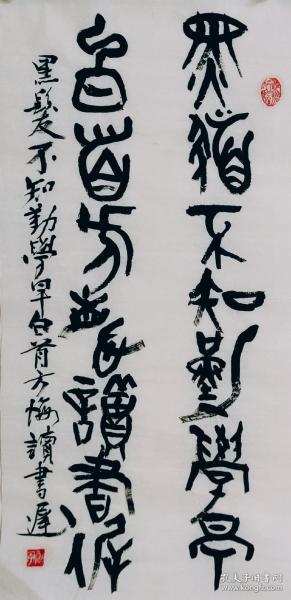 黑发不知勤學早
白首方悔讀書遲
黑髮不知勤學早白首方悔讀書遲
孔夫子旧书网
kongfz.com